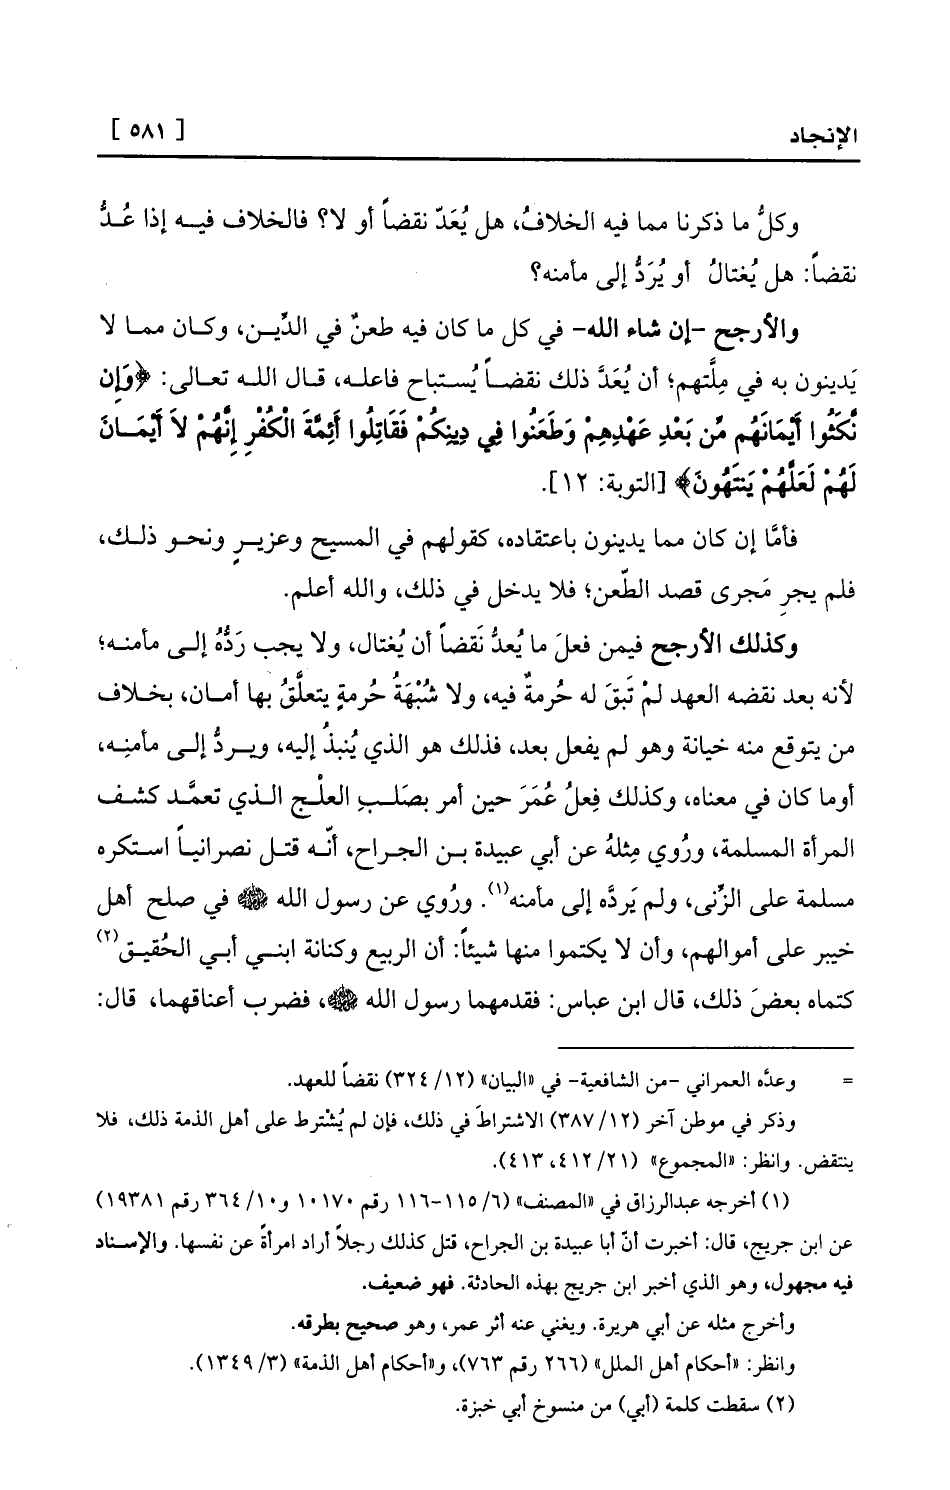 الإنجاد [ ٥٨١ ]
وكلُّ ما ذكرنا مما فيه الخلافُ، هل يُعَدّ نقضاً أو لا؟ فالخلاف فيــه إذا عُــدُّ
نقضاً: هل يُغتالُ أو يُرَدُّ إلى مأمنه؟
والأرجح -إن شاء الله- في كل ما كان فيه طعنٌ في الدِّيـن، وكــان ممــا لا
يَدينون به في مِلَّتهم؛ أن يُعَدَّ ذلك نقضــاً يُســتباح فاعلــه، قــال اللــه تعــالى: ﴿وَإِن
نَّكَثُوا أَيْمَانَهُم مِّن بَعْدِ عَهْدِهِمْ وَطَعَنُوا فِي دِينِكُمْ فَقَاتِلُوا أَئِمَّةَ الْكُفْرِ إِنَّهُمْ لاَ أَيْمَــانَ
لَهُمْ لَعَلَّهُمْ يَنتَهُونَ﴾ [التوبة: ١٢].
فأمَّا إن كان مما يدينون باعتقاده، كقولهم في المسيح وعزيرٍ ونحــو ذلــك،
فلم يجرِ مَجرى قصد الطّعن؛ فلا يدخل في ذلك، والله أعلم.
وكذلك الأرجح فيمن فعلَ ما يُعدُّ نَقضاً أن يُغتال، ولا يجب رَدُّهُ إلــى مأمنــه؛
لأنه بعد نقضه العهد لمْ تَبقَ له حُرمةٌ فيه، ولا شُبْهَةُ حُرمةٍ يتعلَّقُ بها أمــان، بخــلاف
من يتوقع منه خيانة وهو لم يفعل بعد، فذلك هو الذي يُنبذُ إليه، ويــردُّ إلــى مأمنِــه،
أوما كان في معناه، وكذلك فِعلُ عُمَرَ حين أمر بصَلــبِ العلْـج الــذي تعمَّـد كشــف
المرأة المسلمة، ورُوي مِثلهُ عن أبي عبيدة بــن الجراح، أنّــه قتــل نصرانيــاً اســتكره
مسلمة على الزّنى، ولم يَردَّه إلى مأمنه(١). ورُوي عن رسول الله ﷺ في صلح أهل
خيبر على أموالهم، وأن لا يكتموا منها شيئاً: أن الربيع وكنانة ابنــي أبــي الحُقيــق(٢)
كتماه بعضَ ذلك، قال ابن عباس: فقدمهما رسول الله ﷺ، فضرب أعناقهما، قال:
= وعدَّه العمراني -من الشافعية- في «البيان» (١٢/ ٣٢٤) نقضاً للعهد.
وذكر في موطن آخر (١٢/ ٣٨٧) الاشتراطَ في ذلك، فإن لم يُشْترط على أهل الذمة ذلك، فلا
ينتقض. وانظر: «المجموع» (٢١/ ٤١٢، ٤١٣).
(١) أخرجه عبدالرزاق في «المصنف» (٦/ ١١٥-١١٦ رقم ١٠١٧٠ و١٠/ ٣٦٤ رقم ١٩٣٨١)
عن ابن جريج، قال: أخبرت أنّ أبا عبيدة بن الجراح، قتل كذلك رجلاً أراد امرأةً عن نفسها. والإســناد
فيه مجهول، وهو الذي أخبر ابن جريج بهذه الحادثة. فهو ضعيف.
وأخرج مثله عن أبي هريرة. ويغني عنه أثر عمر، وهو صحيح بطرقه.
وانظر: «أحكام أهل الملل» (٢٦٦ رقم ٧٦٣)، و«أحكام أهل الذمة» (٣/ ١٣٤٩).
(٢) سقطت كلمة (أبي) من منسوخ أبي خبزة.